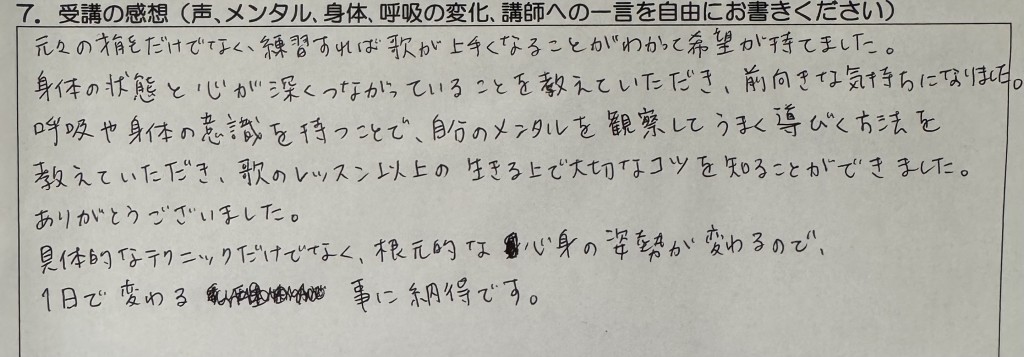 7. 受講の感想（声、メンタル、身体、呼吸の変化、講師への一言を自由にお書きください）
元々の才能だけでなく、練習すれば歌が上手くなることがわかって希望が持てました。
身体の状態と心が深くつながっていることを教えていただき、前向きな気持ちになりました。
呼吸や身体の意識を持つことで、自分のメンタルを観察してうまく導びく方法を
教えていただき、歌のレッスン以上の生きる上で大切なコツを知ることができました。
ありがとうございました。
具体的なテクニックだけでなく、根元的な心身の姿勢が変わるので、
1日で変わる事に納得です。